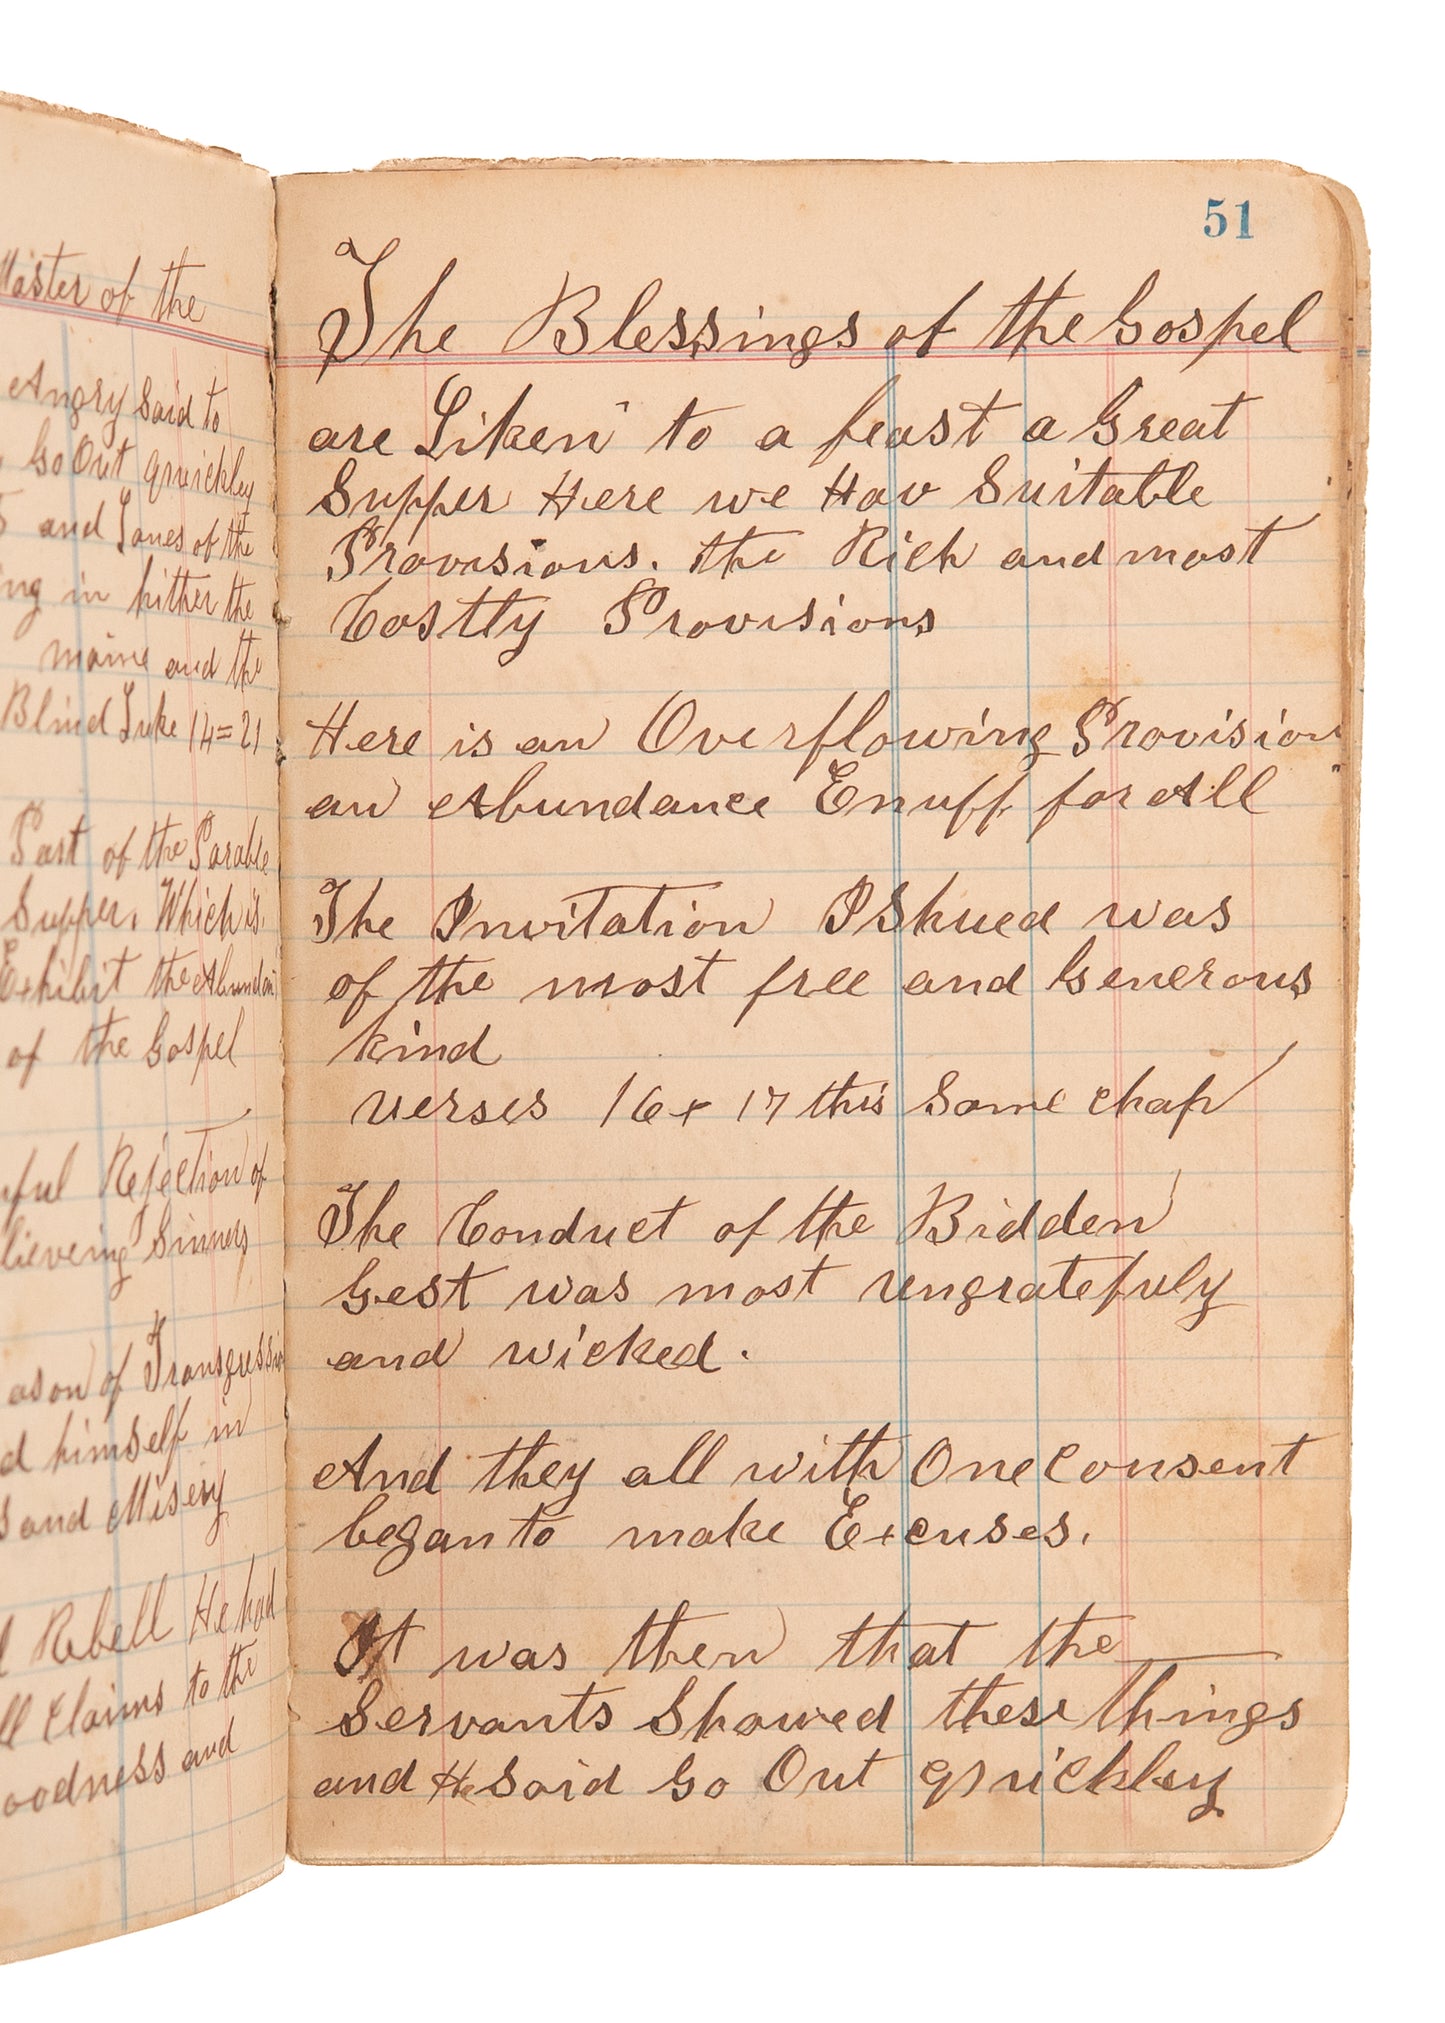 Master of the
Angry Said to
Go Out quickley
and Lanes of the
ing in hither the
maine and the
Blind Luke 14=21
Part of the Parable
Supper. Which is
Exhibit the Abundan
of the Gospel
ful Rejection of
lieveing Sinners
ason of Transgressio
d himself in
s and Misery
Rebell He had
ll Claims to the
oodness and
51
The Blessings of the Gospel
are Liken to a feast a Great
Supper Here we Hav Suitable
Provisions. the Rich and most
Costly Provisions
Here is an Overflowing Provision
an Abundance Enuff for All
The Invitation IShued was
of the most free and Generous
kind
verses 16 + 17 this Same chap
The Conduct of the Bidden
Gest was most ungratefuly
and wicked.
And they all with One Consent
began to make Excuses.
It was then that the
Servants Showed these things
and He Said Go Out quickley